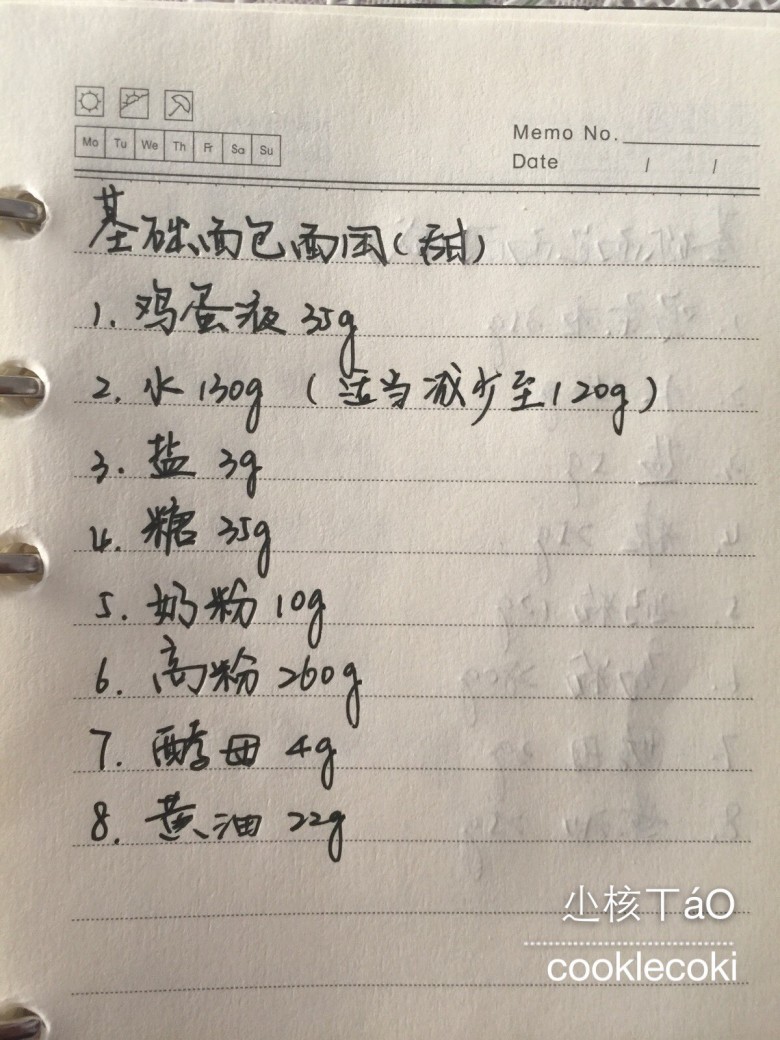 Mo Tu We Th Fr Sa Su
Memo No.
Date / /
基础面包面团(甜)
1. 鸡蛋液 35g
2. 水 130g (适当减少至120g)
3. 盐 3g
4. 糖 35g
5. 奶粉 10g
6. 高粉 260g
7. 酵母 4g
8. 黄油 22g
尐核丅áO
cooklecoki